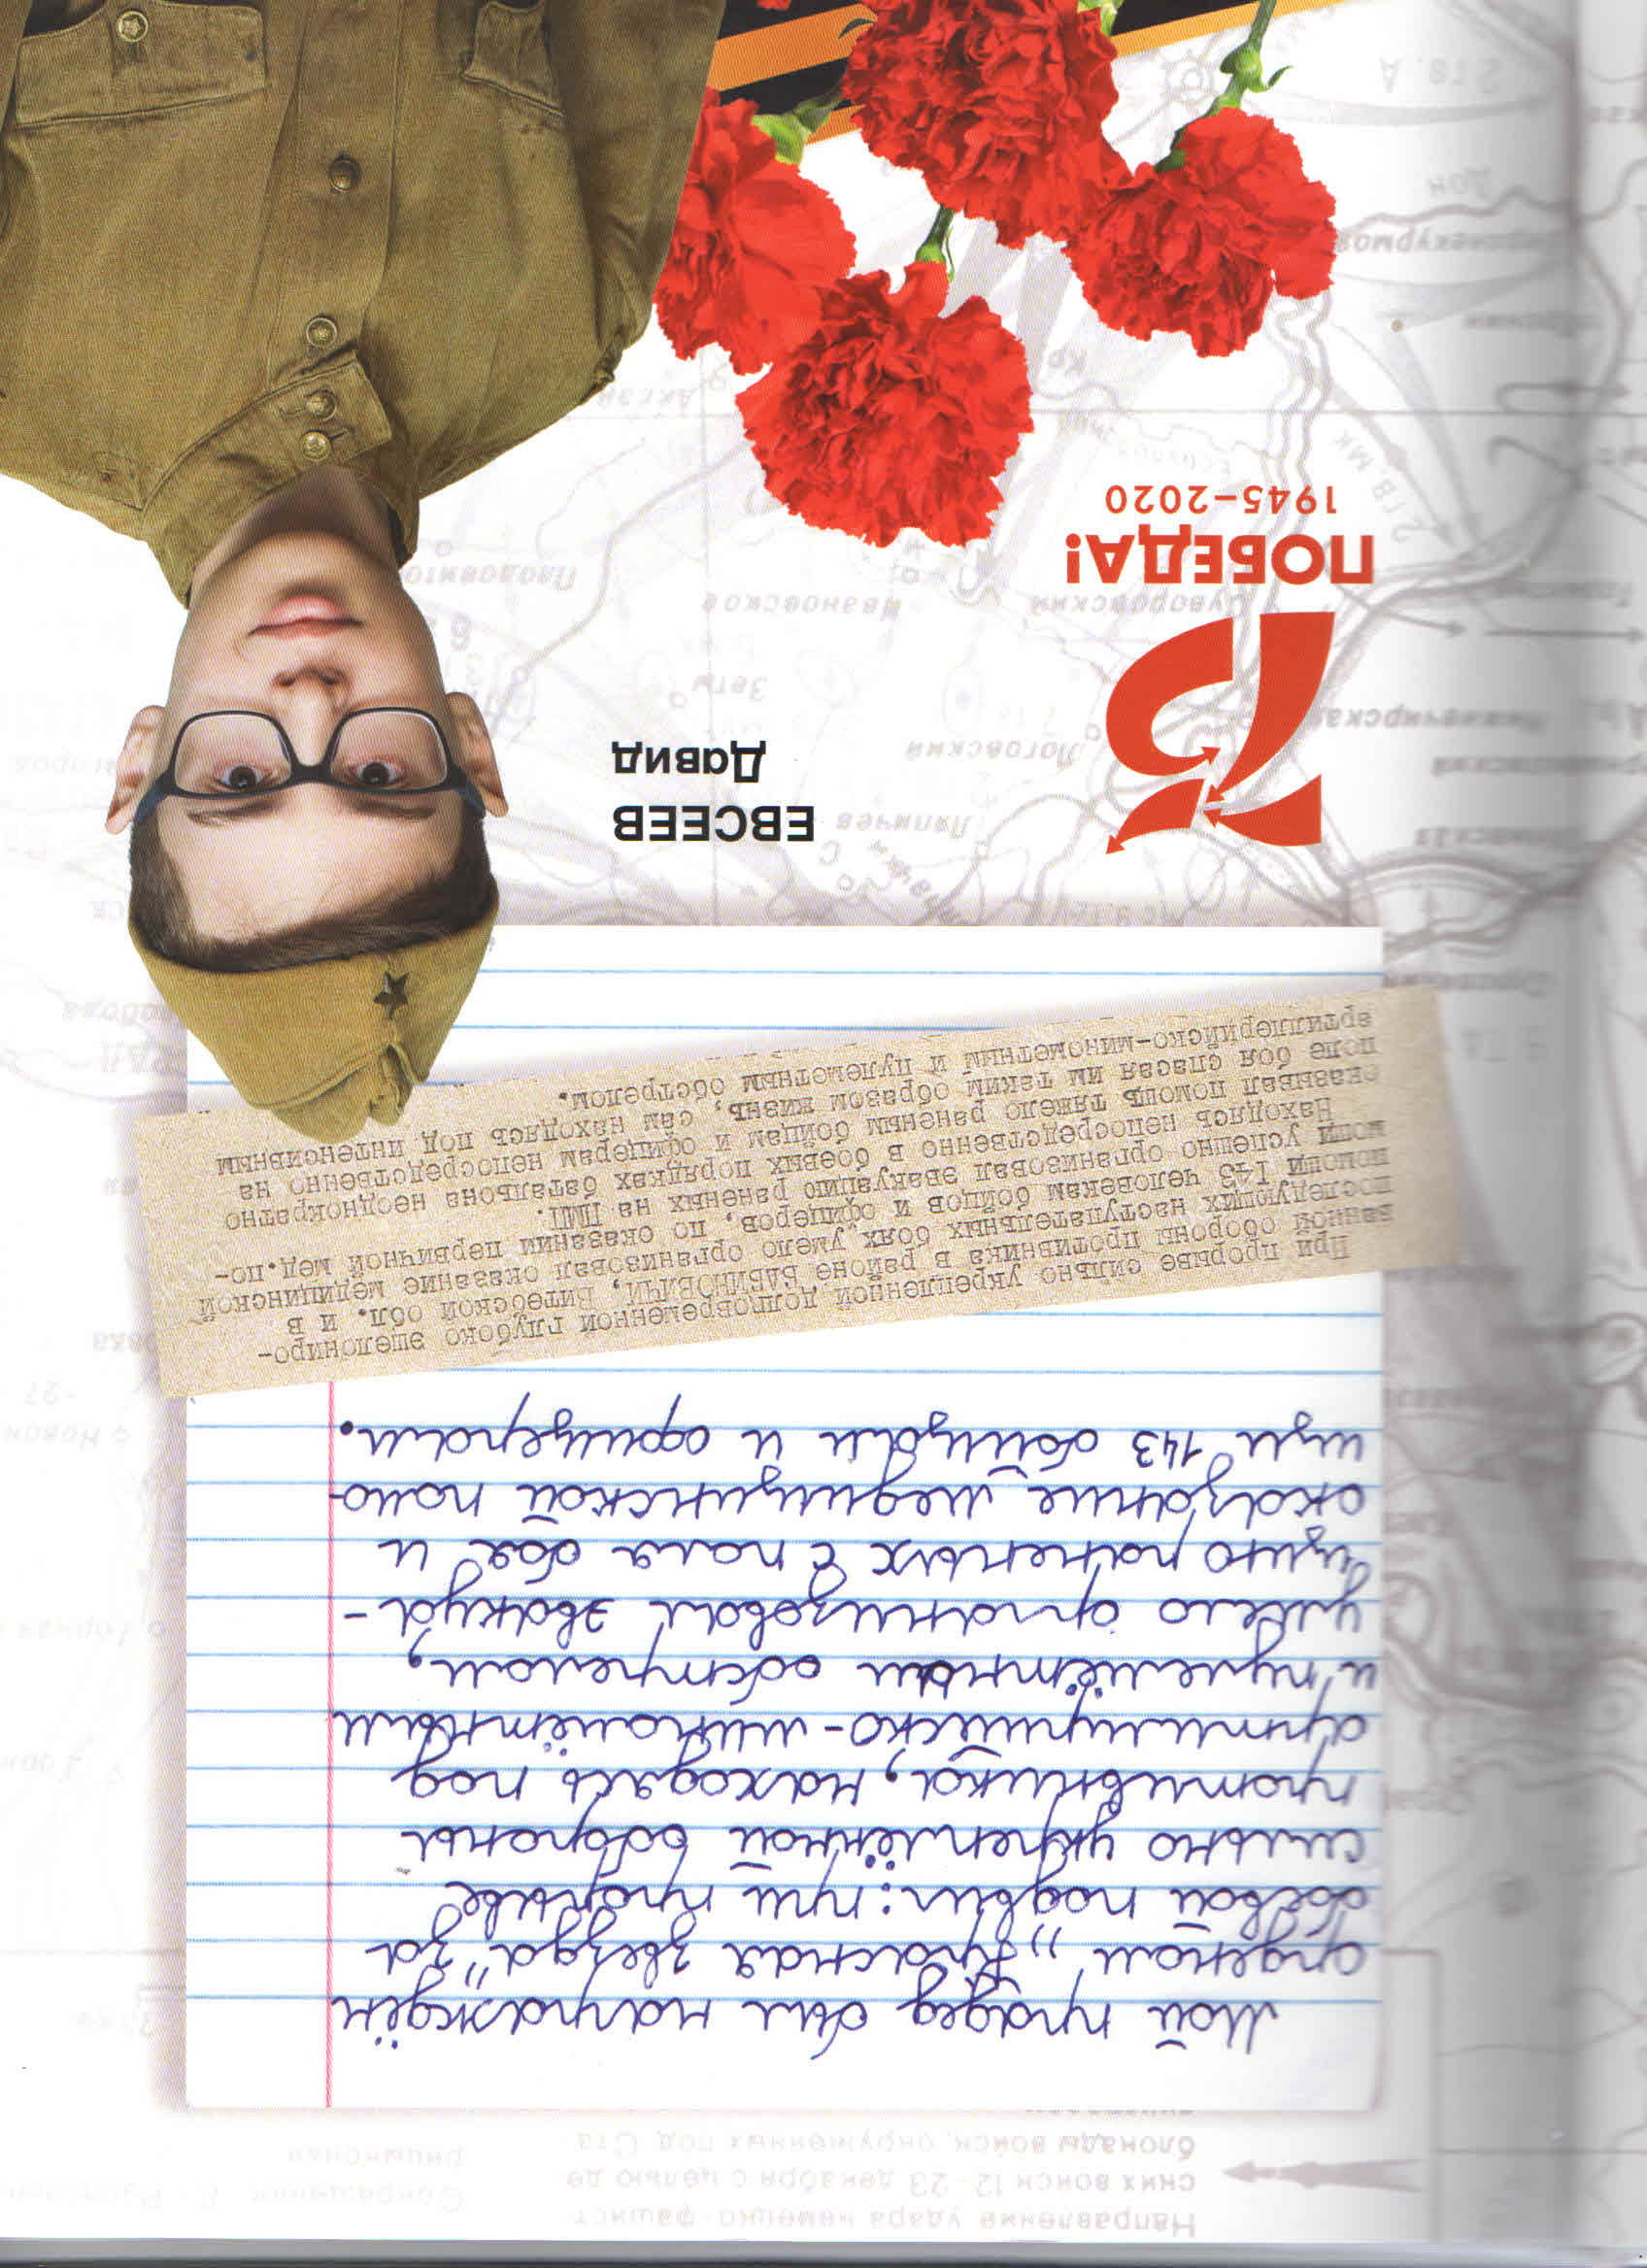 Направление удара немецко-фашист-
ских войск 12-23 декабря с целью де-
блокады войск, окруженных под Ста-
Мой прадед был награждён
орденом „Красная звезда" за
боевой подвиг: при прорыве
сильно укреплённой обороны
противника, находясь под
артилирийско-миномётным
и пулемётным обстрелом,
умело организовал эвакуа-
цию раненых с поля боя и
оказание медицинской помо-
щи 143 бойцам и офицерам.
При прорыве сильно укрепленной долговременной глубоко эшелониро-
ванной обороны противника в районе БАБИНОВИЧИ, Витебской обл. и в
последующих наступательных боях умело организовал оказание медицинской
помощи 143 человекам бойцов и офицеров, по оказании первичной мед.по-
мощи успешно организовал эвакуацию раненых на ПМП.
Находясь непосредственно в боевых порядках батальона неоднократно
оказывал помощь тяжело раненым бойцам и офицерам непосредственно на
поле боя спасая им таким образом жизнь, сам находясь под интенсивным
артиллерийско-минометным и пулеметным обстрелом.
75
ЕВСЕЕВ
Давид
ПОБЕДА!
1945–2020
Ляпичев
Логовский
Нижнечирская
Зеты
Суворовский
Ивановское
Плодовито
2 гв. мк
Аксай
Дон
2 гв. А